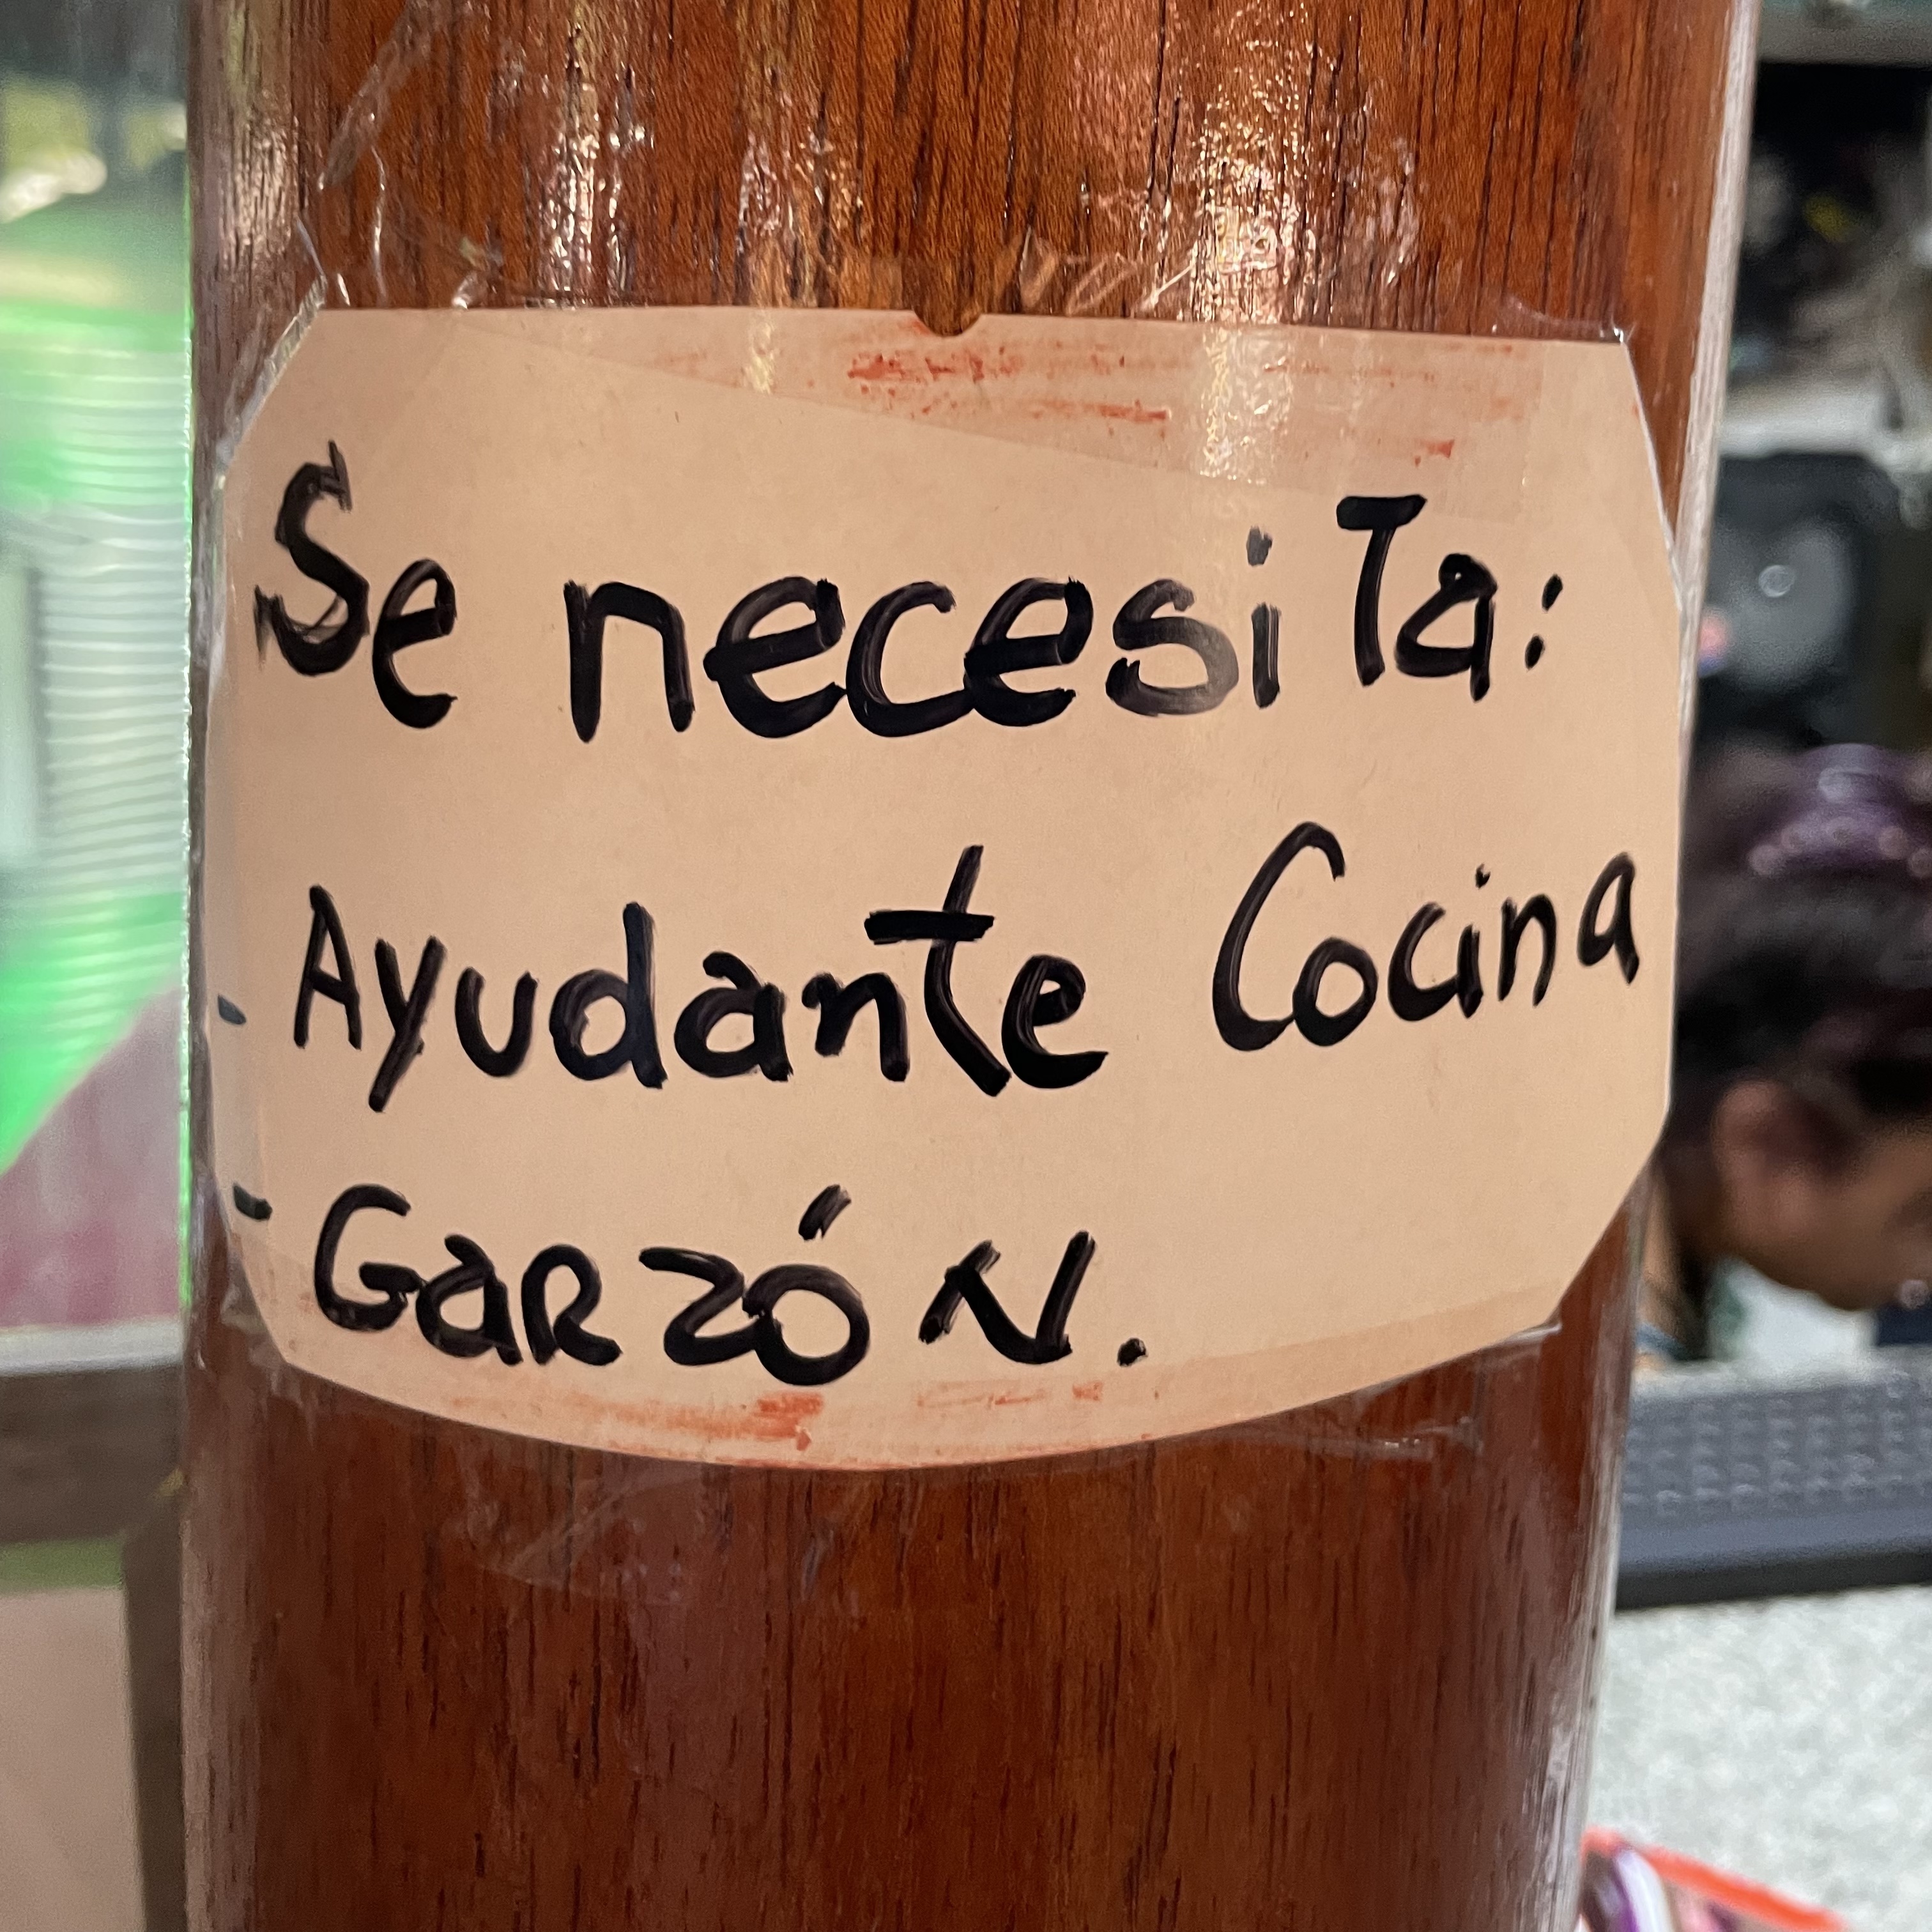 Se necesita:
- Ayudante Cocina
- Garzón.